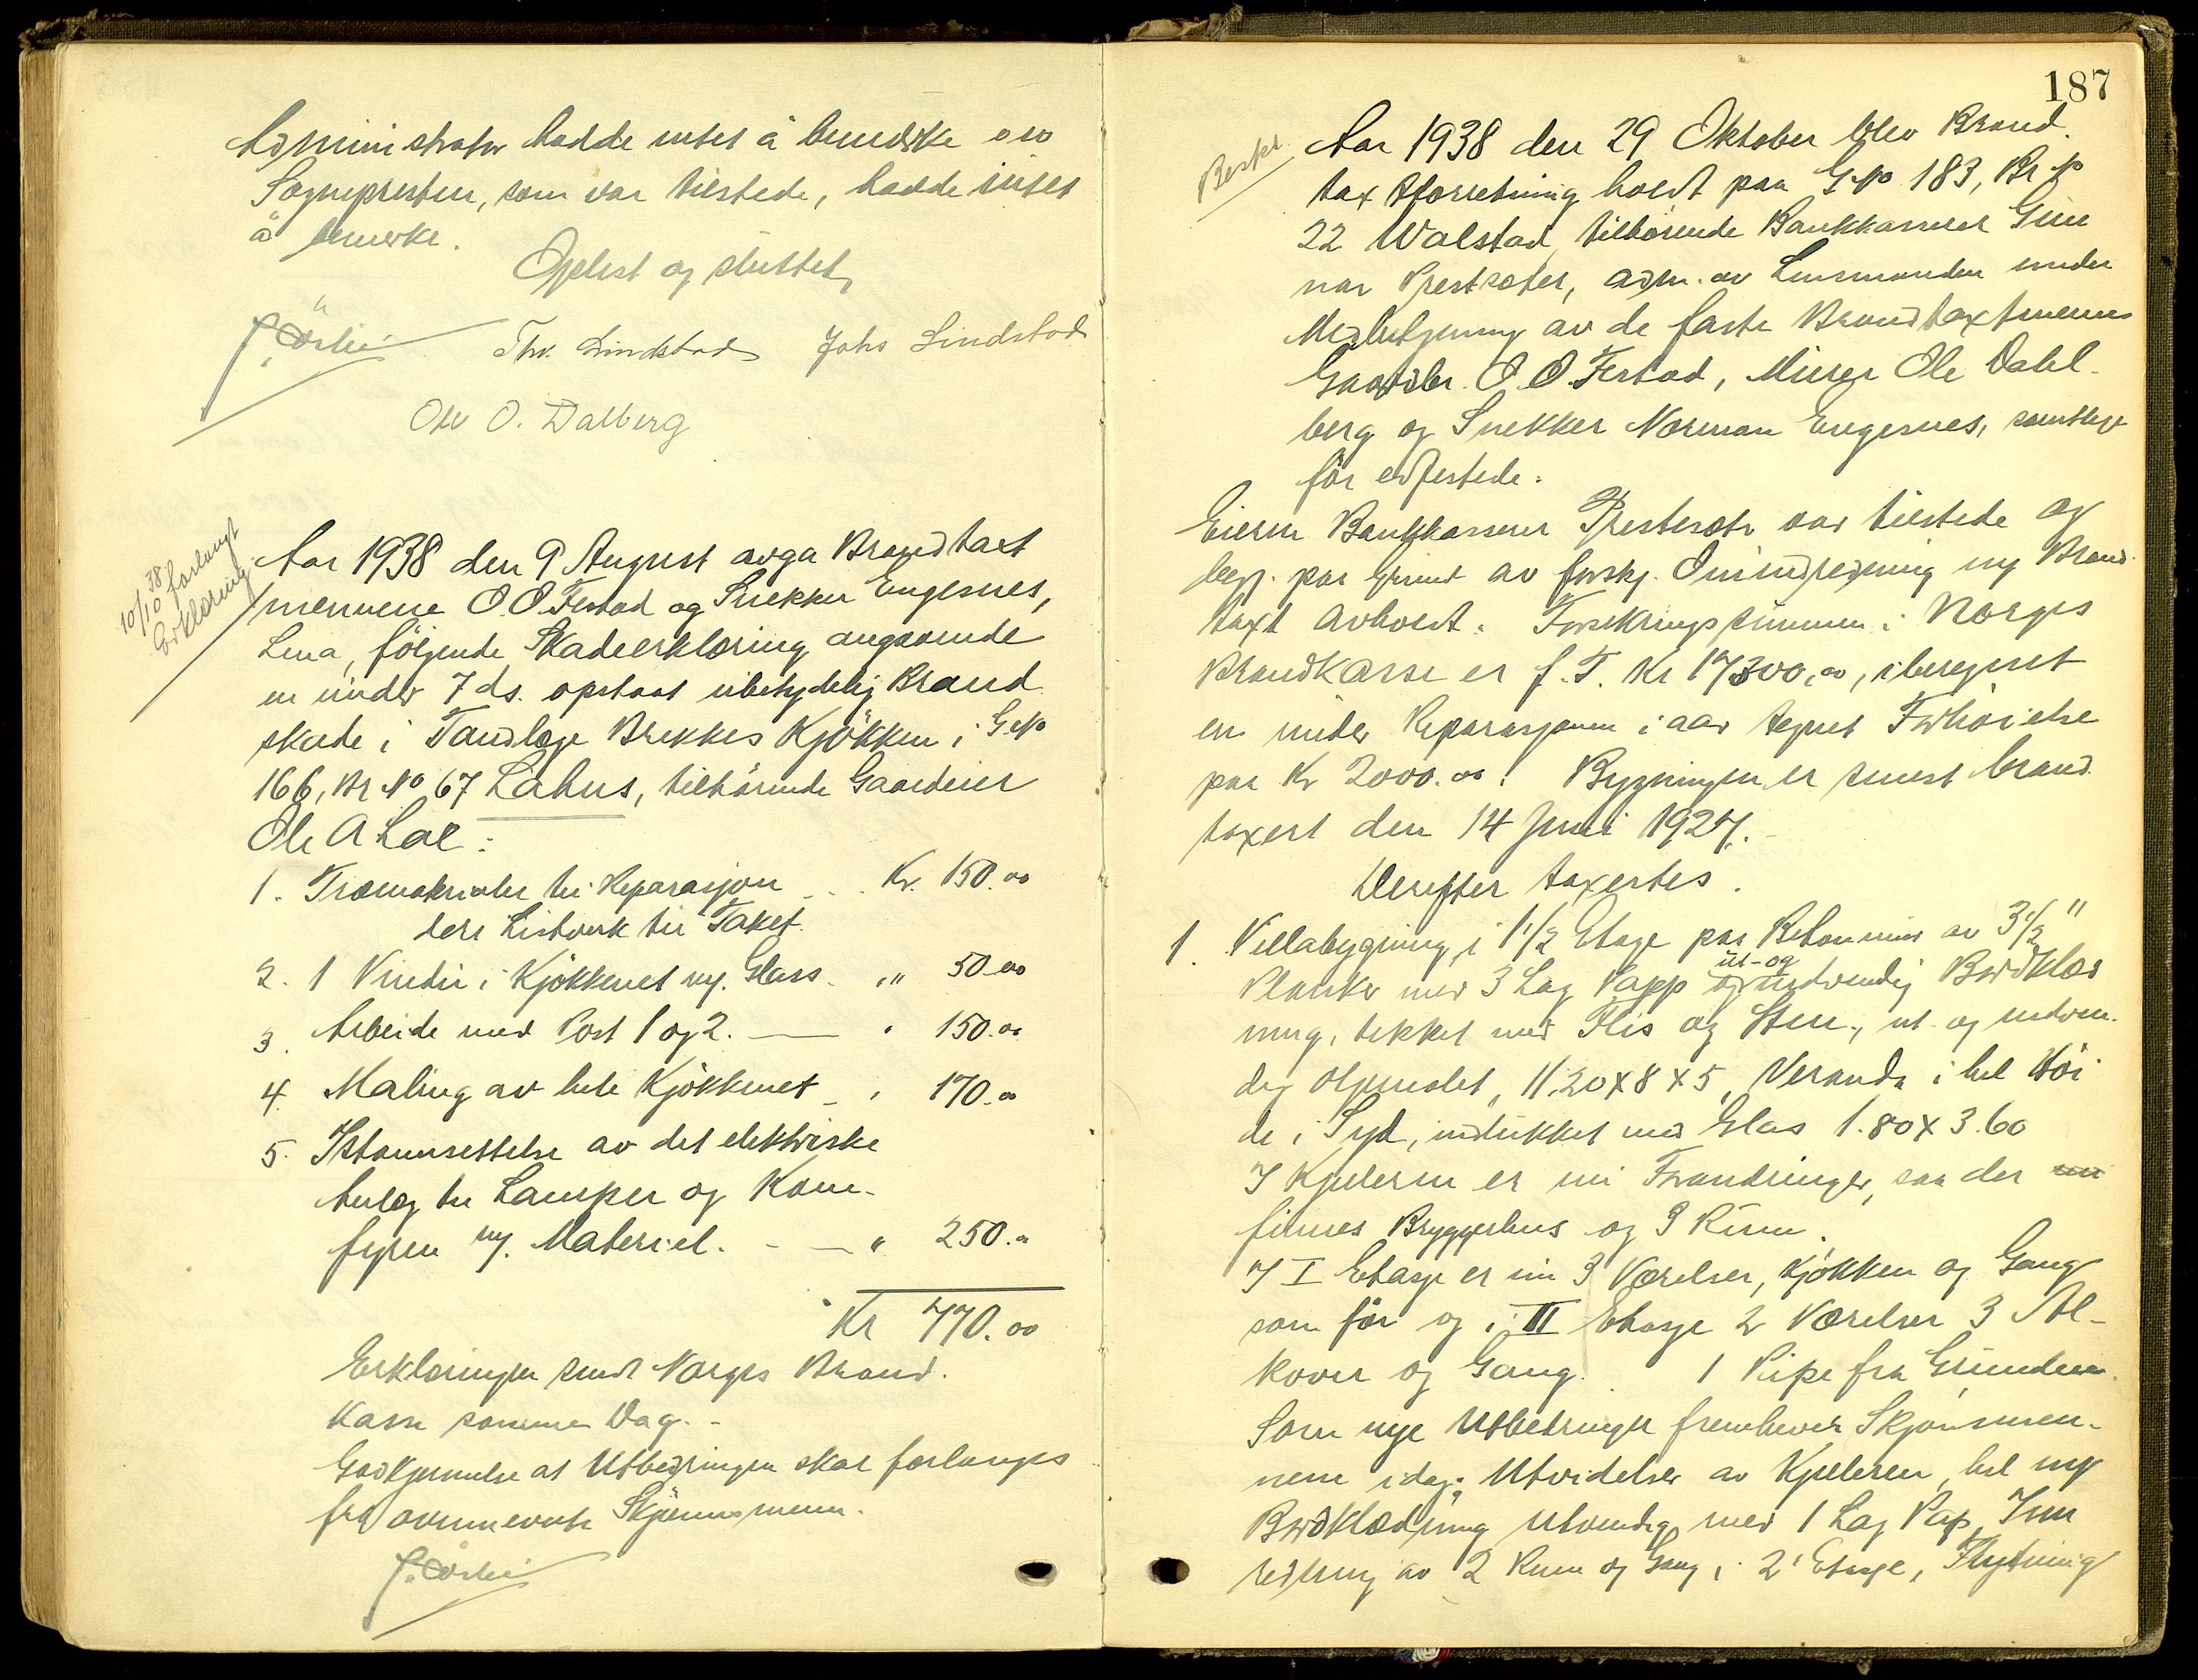 Administrator hadde intet å bemerke og
Sognepresten, som var tilstede, hadde intet
å bemerke.
Oplest og sluttet
Thv. Lindstad Johs Lindstad
Ole O. Dalberg
10/10 38 forlangt
Erklæring.
Aar 1938 den 9 August avga Brandtaxt
mennene O. O. Festad og Snekker Engesnes,
Lena, følgende Skadeerklæring angaaende
en under 7 ds. opstaat ubetydelig Brand
skade i Tandlæge Brekkes Kjøkken i G No
166, Br No 67 Låhus, tilhørende Gaardeier
Ole A Lae:
1. Træmaterialer til Reparasjon Kr. 150.00
Listverk til Taket.
2. 1 Vindu i Kjøkkenet m/. Glass. „ 50.00
3. Arbeide med Post 1 og 2. — „ 150.00
4. Maling av hele Kjøkkenet „ 170.00
5. Istannsettelse av det elektriske
Anlæg til Lamper og Kom-
fyren m/. Materiel. - — „ 250.00
Kr 770.00
Erklæringen sendt Norges Brand.
kasse samme Dag. -
Godkjennelse at Utbedringen skal forlanges
fra ovennevnte Skjønnsmenn.
187
Beskr.
Aar 1938 den 29 Oktober blev Brand.
taxtforretning holdt paa G No 183, Br No
22 Walstad, tilhørende Bankkasserer Gun
nar Prestsæter, adm. av Lensmanden under
Medbetjening av de faste Brandtaxtmenn
Gaardbr. O. O. Festad, Murer Ole Dahl-
berg og Snekker Norman Engesnes, samtlige
før edfestede.
Eieren Bankkasserer Prestesæter var tilstede og
begj. paa Grund av forskj. Ominnredning ny Brand
taxt avholdt. Forsikringssummen i Norges
Brandkasse er f. T. Kr 17300,00, iberegnet
en under Reparasjonen i aar tegnet Forhøielse
paa Kr 2000.00. Bygningen er senest brand
taxert den 14 Juni 1927.
Derefter taxertes.
1. Villabygning i 1 1/2 Etage paa Betonmur av 3 1/2"
Planker med 3 Lag Papp ut- og indvendig Bordklæd
ning, tekket med Flis og Sten, ut- og indven.
dig oljemalet, 11.20 x 8 x 5, Veranda i hel Høi
de i Syd, indlukket med Glas 1.80 x 3.60
I Kjelleren er nu Forandringer, saa der
finnes Bryggerhus og 3 Rum.
I I Etasje er nu 3 Værelser, Kjøkken og Gang
som før og i II Etasje 2 Værelser 3 Al-
kover og Gang. 1 Pipe fra Grunden.
Som nye Utbedringer fremhever Skjønsmen-
nene idag: Utvidelse av Kjelleren, hel ny
Bordklædning utvendig med 1 Lag Pap, Inn
redning av 2 Rum og Gang i 2' Etasje, Flytning